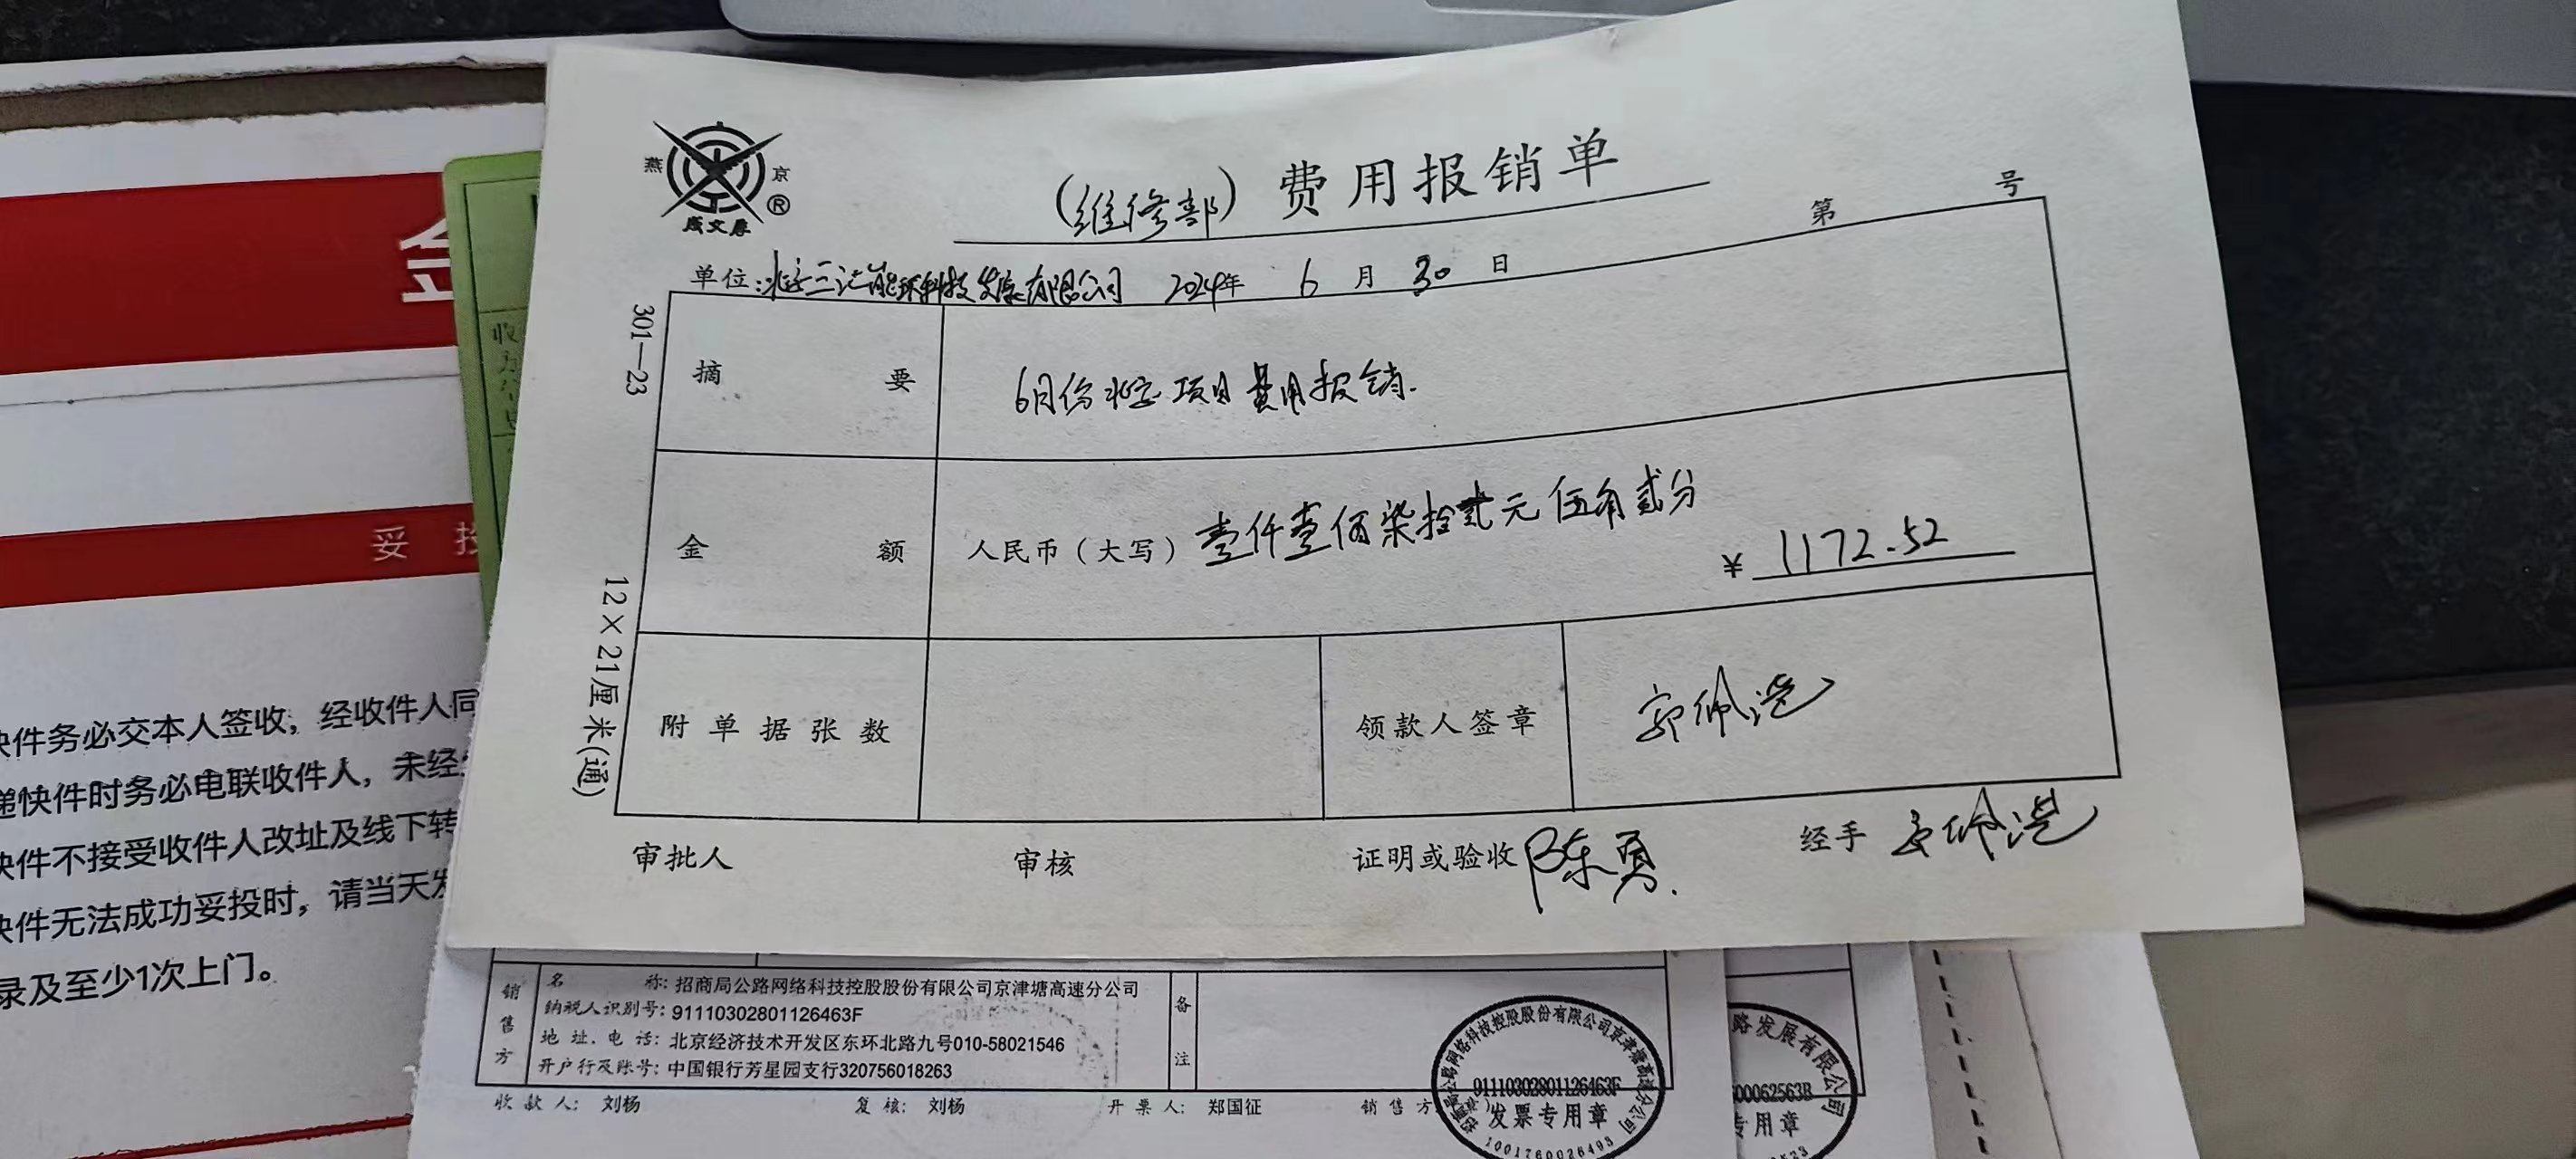 燕 京
®
成文厚
(维修部) 费用报销单
第 号
单位:北京三汇能环科技发展有限公司 2024年 6 月 30 日
301—23
12×21厘米(通)
摘 要
6月份北京项目费用报销.
金 额
人民币(大写) 壹仟壹佰柒拾贰元伍角贰分
¥ 1172.52
附单据张数
领款人签章
审批人
审核
证明或验收 陈勇.
经手
妥 投
快件务必交本人签收，经收件人同
递快件时务必电联收件人，未经
快件不接受收件人改址及线下转
快件无法成功妥投时，请当天
录及至少1次上门。
销售方
名 称: 招商局公路网络科技控股股份有限公司京津塘高速分公司
纳税人识别号: 91110302801126463F
地址、电话: 北京经济技术开发区东环北路九号010-58021546
开户行及账号: 中国银行芳星园支行320756018263
备注
收款人: 刘杨 复核: 刘杨 开票人: 郑国征 销售方:
招商局公路网络科技控股股份有限公司京津塘高速分公司
91110302801126463F
发票专用章
1001760026493
路发展有限公司
00062563B
专用章